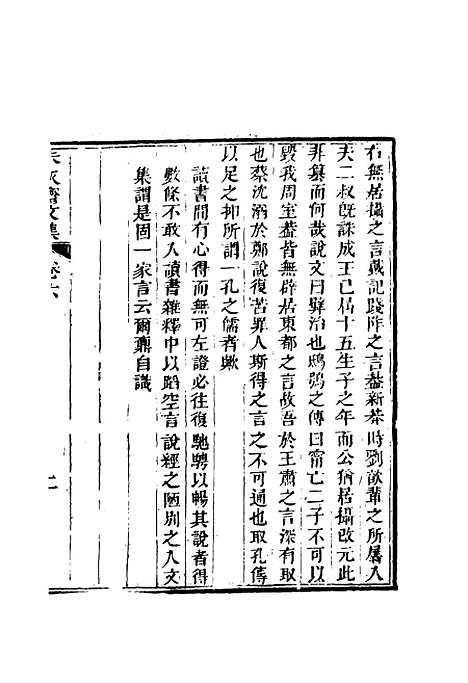 右無居攝之言戴記踐阼之言蓋新莽時劉歆輩之所屬入
夫二叔旣誅成王已居十五生子之年而公猶居攝改元此
非篡而何哉說文曰嬖治也鴟鴞之傳曰甯亡二子不可以
毀我周室蓋皆無辟居東都之言故吾於王肅之言深有取
也蔡沈溺於鄭說復苦罪人斯得之言之不可通也取孔傳
以足之抑所謂一孔之儒者歟
讀書間有心得而無可左證必往復馳騁以暢其說者得
數條不敢入讀書雜釋中以蹈空言說經之陋別之入文
集謂是固一家言云爾鼒自識
文集
卷六